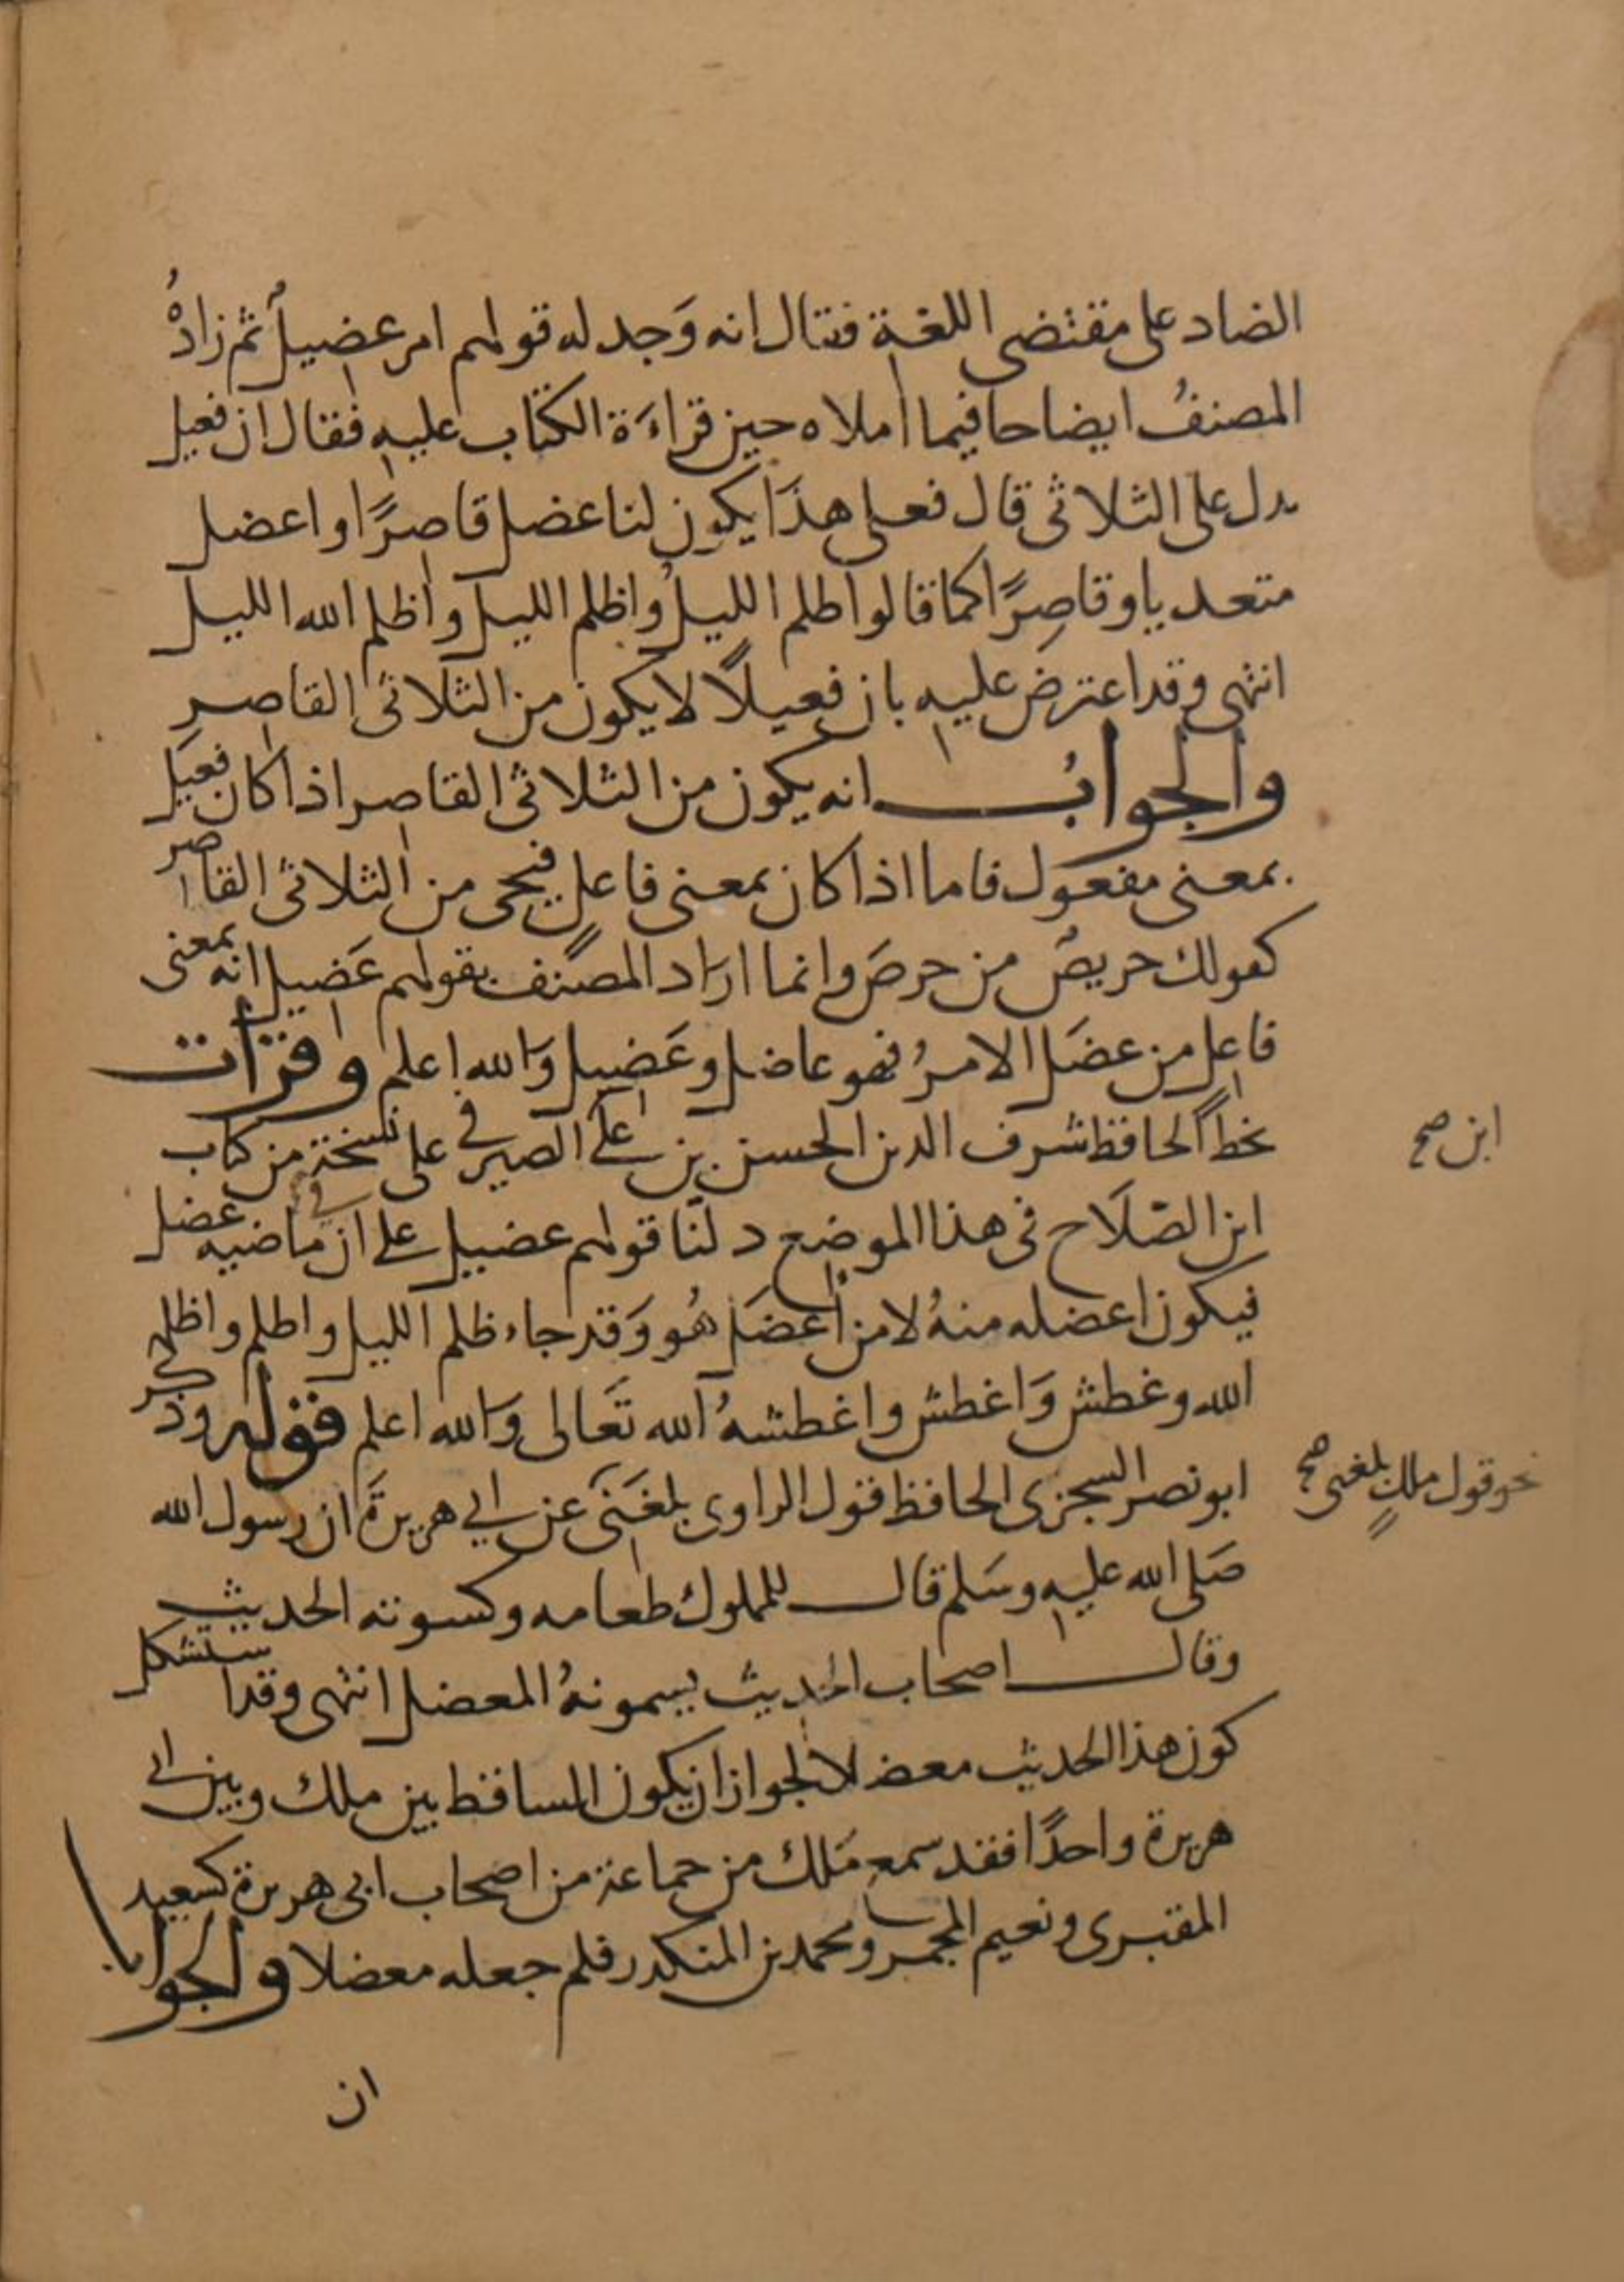 الضاد على مقتضى اللغة فقال انه وَجد له قولهم امر عضيلٌ ثم زادهُ
المصنفُ ايضاحا فيما املاه حين قراءَة الكتاب عليه فقال ان فعيل
يدل على الثلاثى قال فعلى هذَا يكون لنا عضل قاصرًا واعضل
متعديا وقاصِرًا كما قالوا ظلم الليلُ واظلم الليل واظلم الله الليل
انتهى وقد اعترض عليه بان فعيلًا لا يكون من الثلاثى القاصر
والجوابُ انه يكون من الثلاثى القاصر اذا كان فعيل
بمعنى مفعول فاما اذا كان بمعنى فاعل فيجى من الثلاثى القاصر
كقولك حريصٌ من حرصَ وانما ارَاد المصنف بقولهم عَضيل انه بمعنى
فاعل من عضَل الامرُ فهو عاضل وعَضيل وَالله اعلم وقرأت
بخط الحافظ شرف الدين الحسن بن على الصيرفى على نسخة من كتاب
ابن صح
ابن الصّلَاح فى هذا الموضع دلّنا قولهم عضيل على ان فى ماضيه عضل
فيكون اعضله منهُ لا من أعضَل هُو وَقد جاء ظلم الليل واظلم واظلمه
الله وغطش وَاغطش واغطشهُ الله تعَالى وَالله اعلم قوله وذكر
ابو نصر السجزى الحافظ قول الراوى بلغَنى عن ابى هريرةَ ان رسول الله
نحو قول ملكٍ بلغنى صح
صَلى الله عليه وسَلم قال للمملوك طعامه وكسوته الحديث
وقال اصحاب الحديث يسمونهُ المعضل انتهى وقد استشكل
كون هذا الحديث معضلا لجواز ان يكون الساقط بين ملك وبين ابى
هريرة واحدًا فقد سمع مَلك من جماعة من اصحاب ابى هريرة كسعيد
المقبرى ونعيم المجمر ومحمد بن المنكدر فلم جعله معضلا والجواب
ان